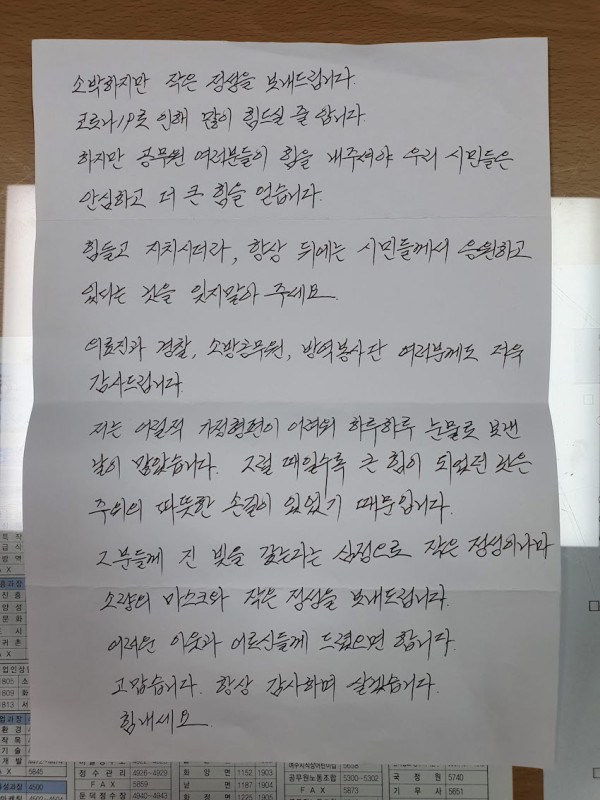 소박하지만 작은 정성을 보내드립니다.
코로나19로 인해 많이 힘드실 줄 압니다.
하지만 공무원 여러분들이 힘을 내주셔야 우리 시민들은
안심하고 더 큰 힘을 얻습니다.
힘들고 지치시더라, 항상 뒤에는 시민들께서 응원하고
있다는 것을 잊지말아 주세요.
의료진과 경찰, 소방공무원, 방역봉사단 여러분께도 저욱
감사드립니다
저는 어릴적 가정형편이 어려워 하루하루 눈물로 보낸
날이 많았습니다. 그럴 때일수록 큰 힘이 되었던 것은
주위의 따뜻한 손길이 있었기 때문입니다.
그분들께 진 빚을 갚는다는 심정으로 작은 정성이나마
소량의 마스크와 작은 정성을 보내드립니다.
어려운 이웃과 어르신들께 드렸으면 합니다.
고맙습니다. 항상 감사하며 살겠습니다.
힘내세요
FAX 5845
정수관리 4926~4929
FAX 4859
둔덕정수장 4940~4943
화양면 1152 1903
남면 1187 1904
공무원노동조합 5300~5302
FAX 5873
국정원 5740
기무사 5651